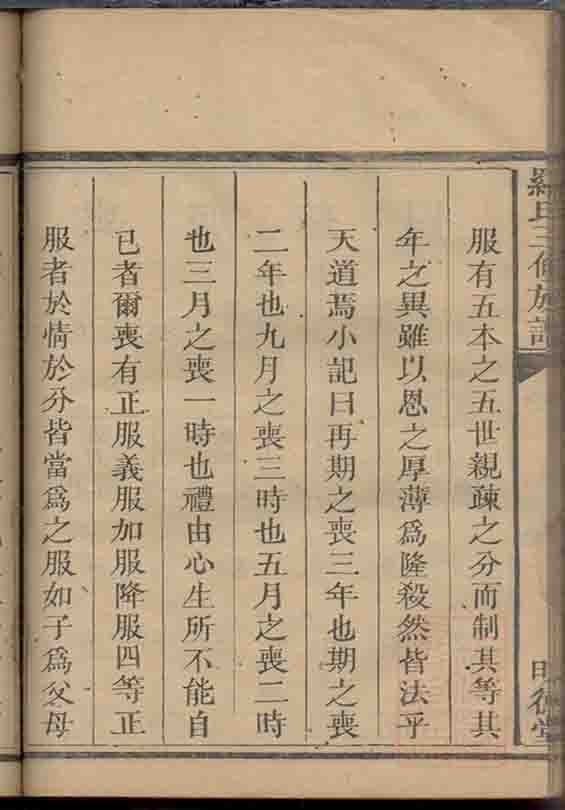 羅氏三修族譜
明德堂
服有五本之五世親疎之分而制其等其
年之異雖以恩之厚薄爲隆殺然皆法乎
天道焉小記曰再期之喪三年也期之喪
二年也九月之喪三時也五月之喪二時
也三月之喪一時也禮由心生所不能自
已者爾喪有正服義服加服降服四等正
服者於情於分皆當爲之服如子爲父母